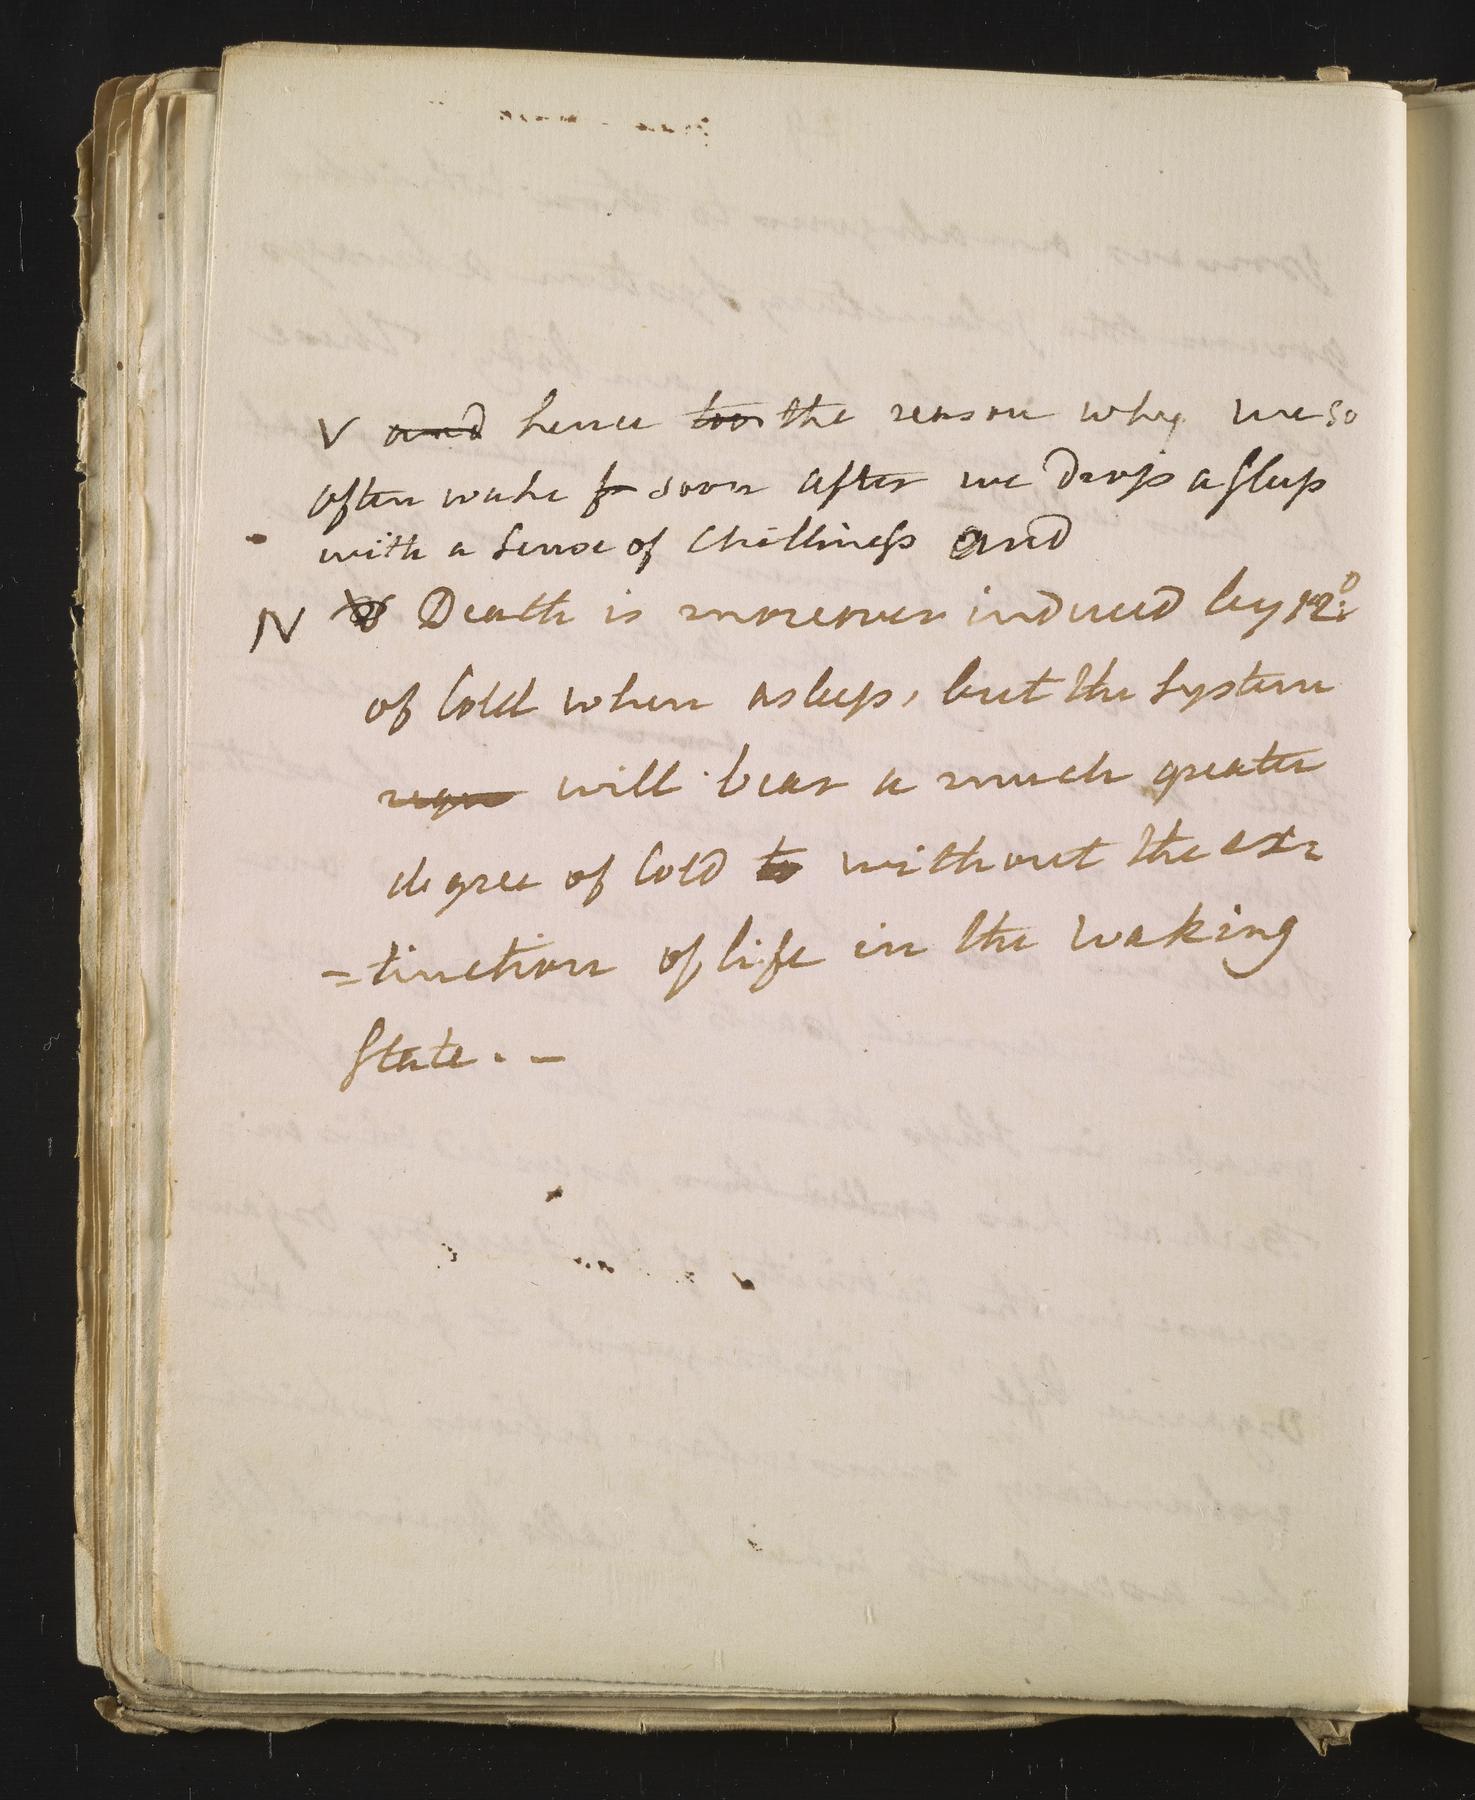 V and hence too the reason why we so
often wake f soon after we drop asleep
with a sense of chilliness and
N Death is moreover induced by 12°:
of Cold when asleep, but the system
will bear a much greater
degree of Cold to without the ex=
=tinction of life in the waking
State. –